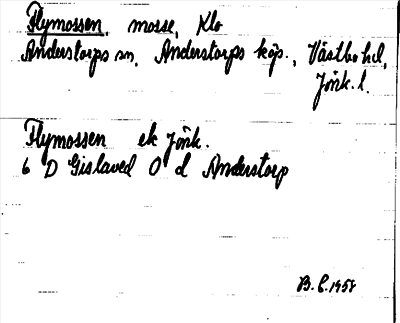 Flymossen, mosse, Klo
Anderstorps sn, Anderstorps köp., Västbo hd,
Jönk. l.
Flymossen ek Jönk.
6 D Gislaved O d Anderstorp
B. E. 1958